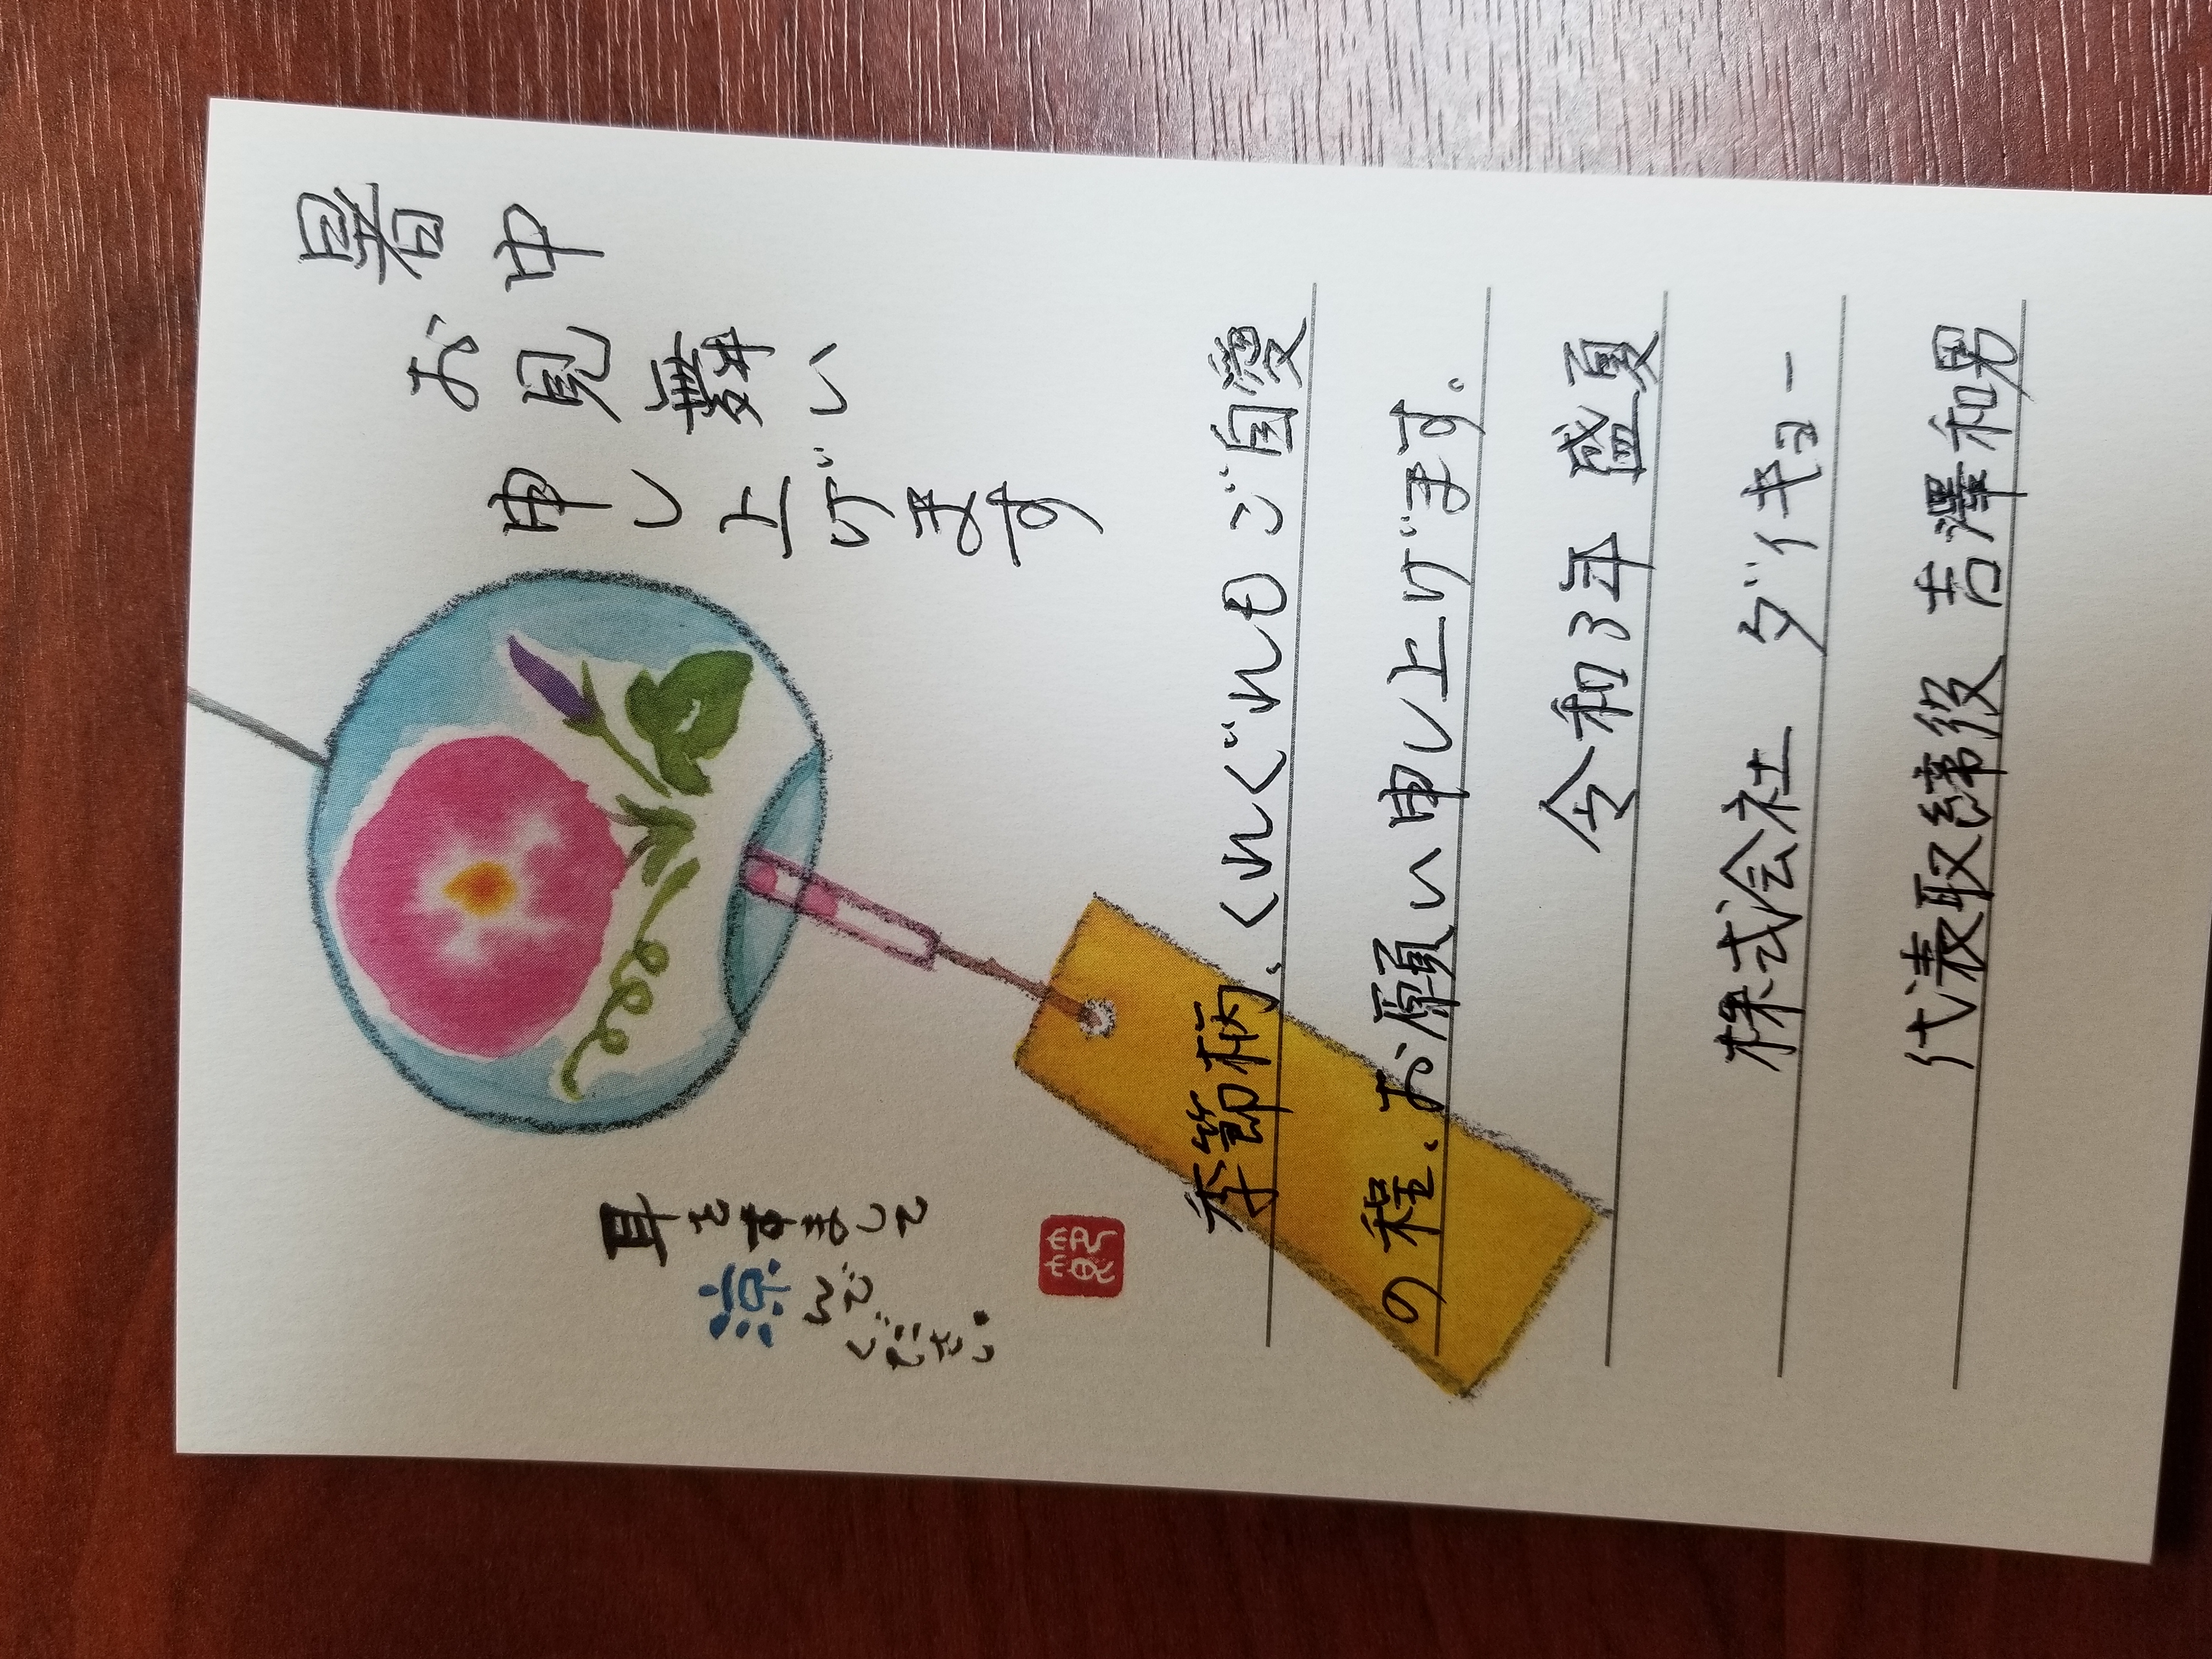 暑中
お見舞い
申し上げます
耳をすまして
涼んで
ください。
季節柄、くれぐれもご自愛
の程、お願い申し上げます。
令和3年 盛夏
株式会社 ダイキョー
代表取締役 吉澤和男